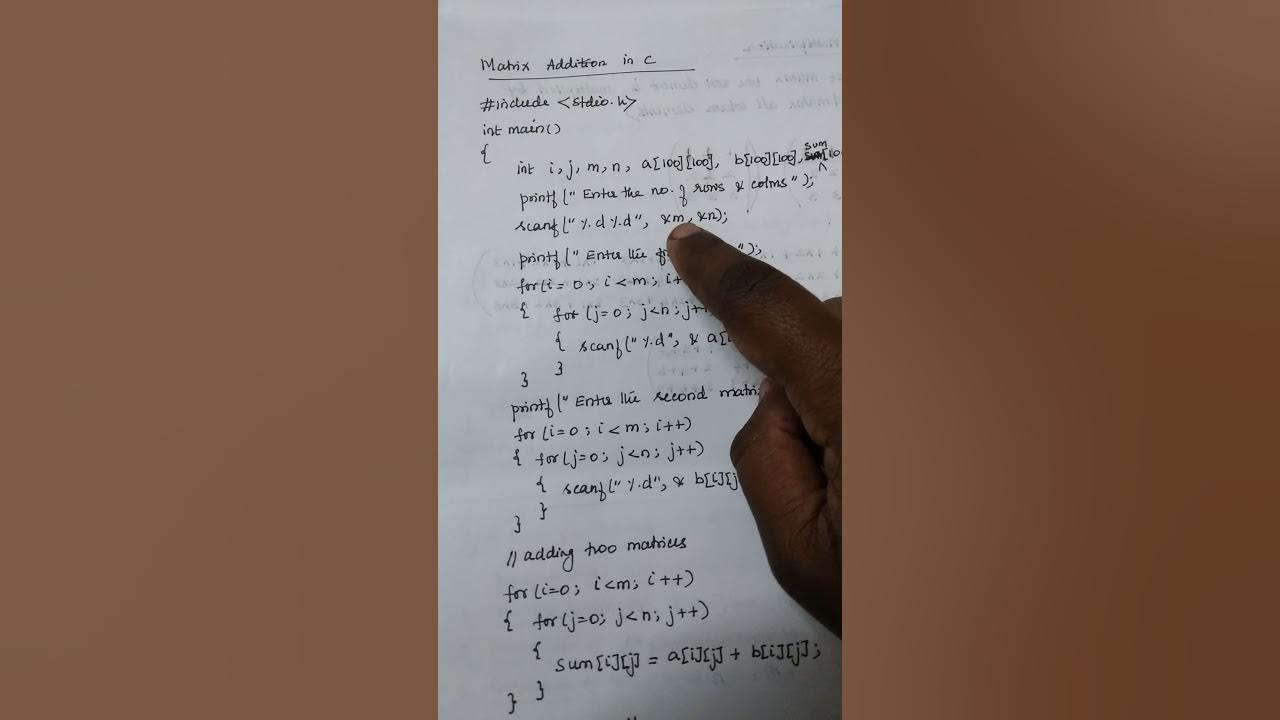 Matrix Addition in C
#include <stdio.h>
int main()
{
int i, j, m, n, a[100][100], b[100][100], sum[100
printf(" Enter the no. of rows & colms");
scanf("%d%d", &m, &n);
printf(" Enter the ");
for(i = 0; i < m; i+
{ for (j=0; j<n; j++
{ scanf("%d", & a[i
}
}
printf(" Enter the second matri
for (i=0; i < m; i++)
{ for(j=0; j<n; j++)
{ scanf("%d", & b[i][j
}
}
// adding two matrices
for (i=0; i<m; i++)
{ for(j=0; j<n; j++)
{
sum[i][j] = a[i][j] + b[i][j];
}
}